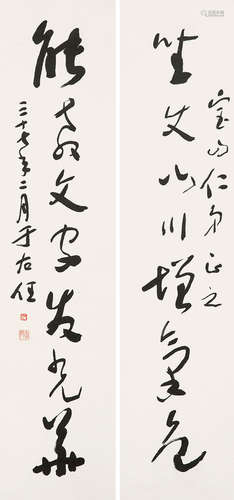 坐使山川增气色
宝山仁弟正之
能教文字发光华
三十七年二月于右任